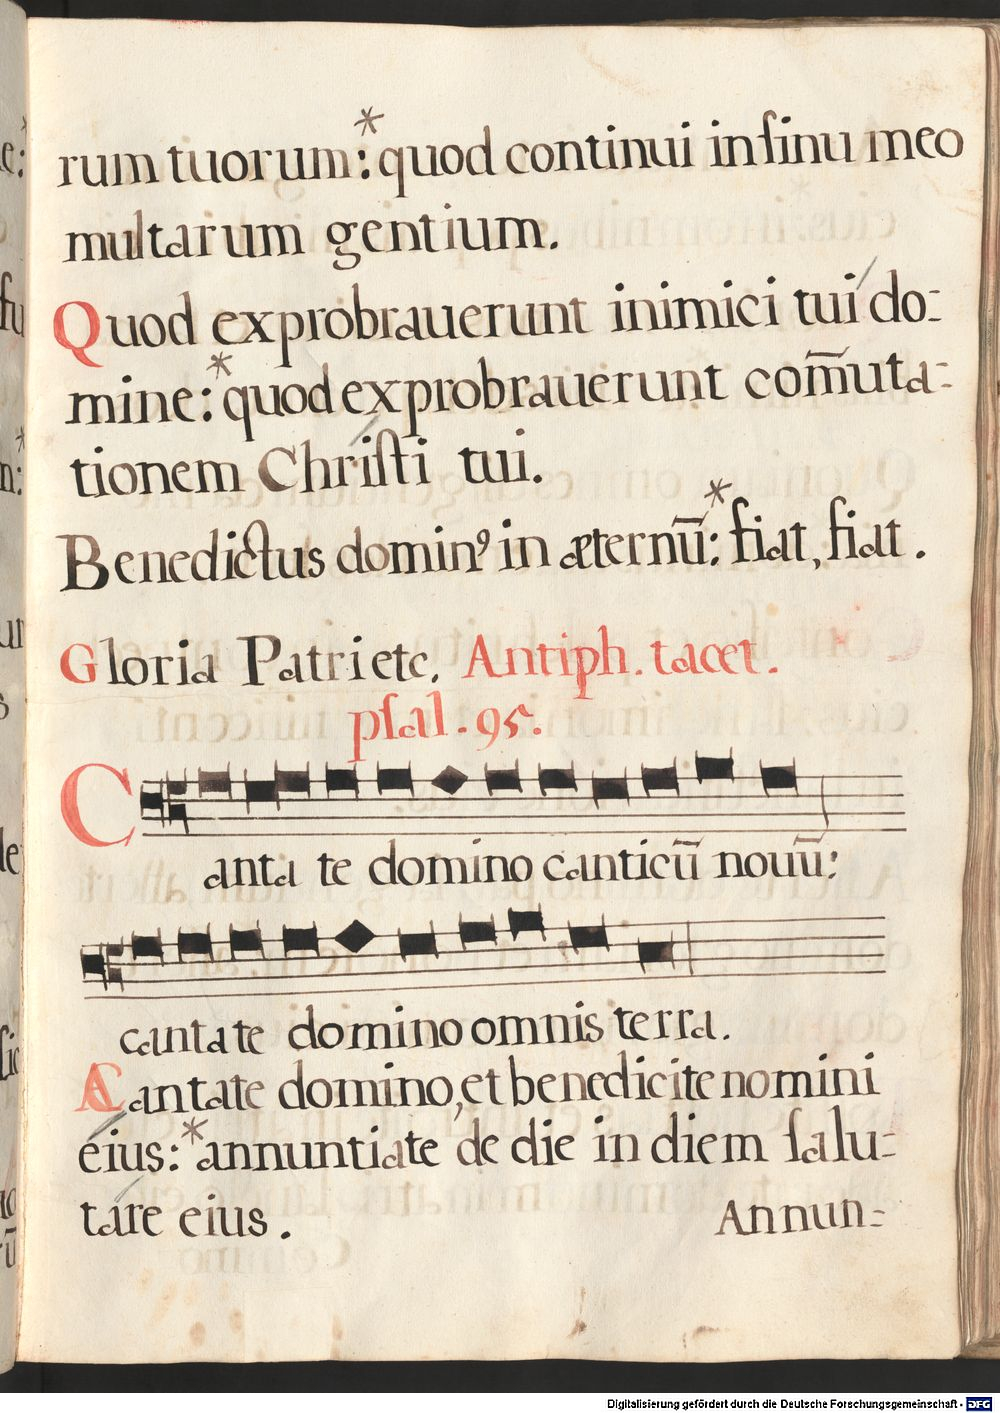 rum tuorum:* quod continui in ſinu meo
multarum gentium.
Quod exprobrauerunt inimici tui do-
mine:* quod exprobrauerunt com̃uta-
tionem Chriſti tui.
Benedictus dominꝰ in æternũ:* fiat, fiat.
Gloria Patri etc. Antiph. tacet.
pſal. 95.
Canta te domino canticũ nouũ:
cantate domino omnis terra.
Cantate domino, et benedicite nomini
eius:* annuntiate de die in diem ſalu-
tare eius. Annun-
Digitalisierung gefördert durch die Deutsche Forschungsgemeinschaft - DFG